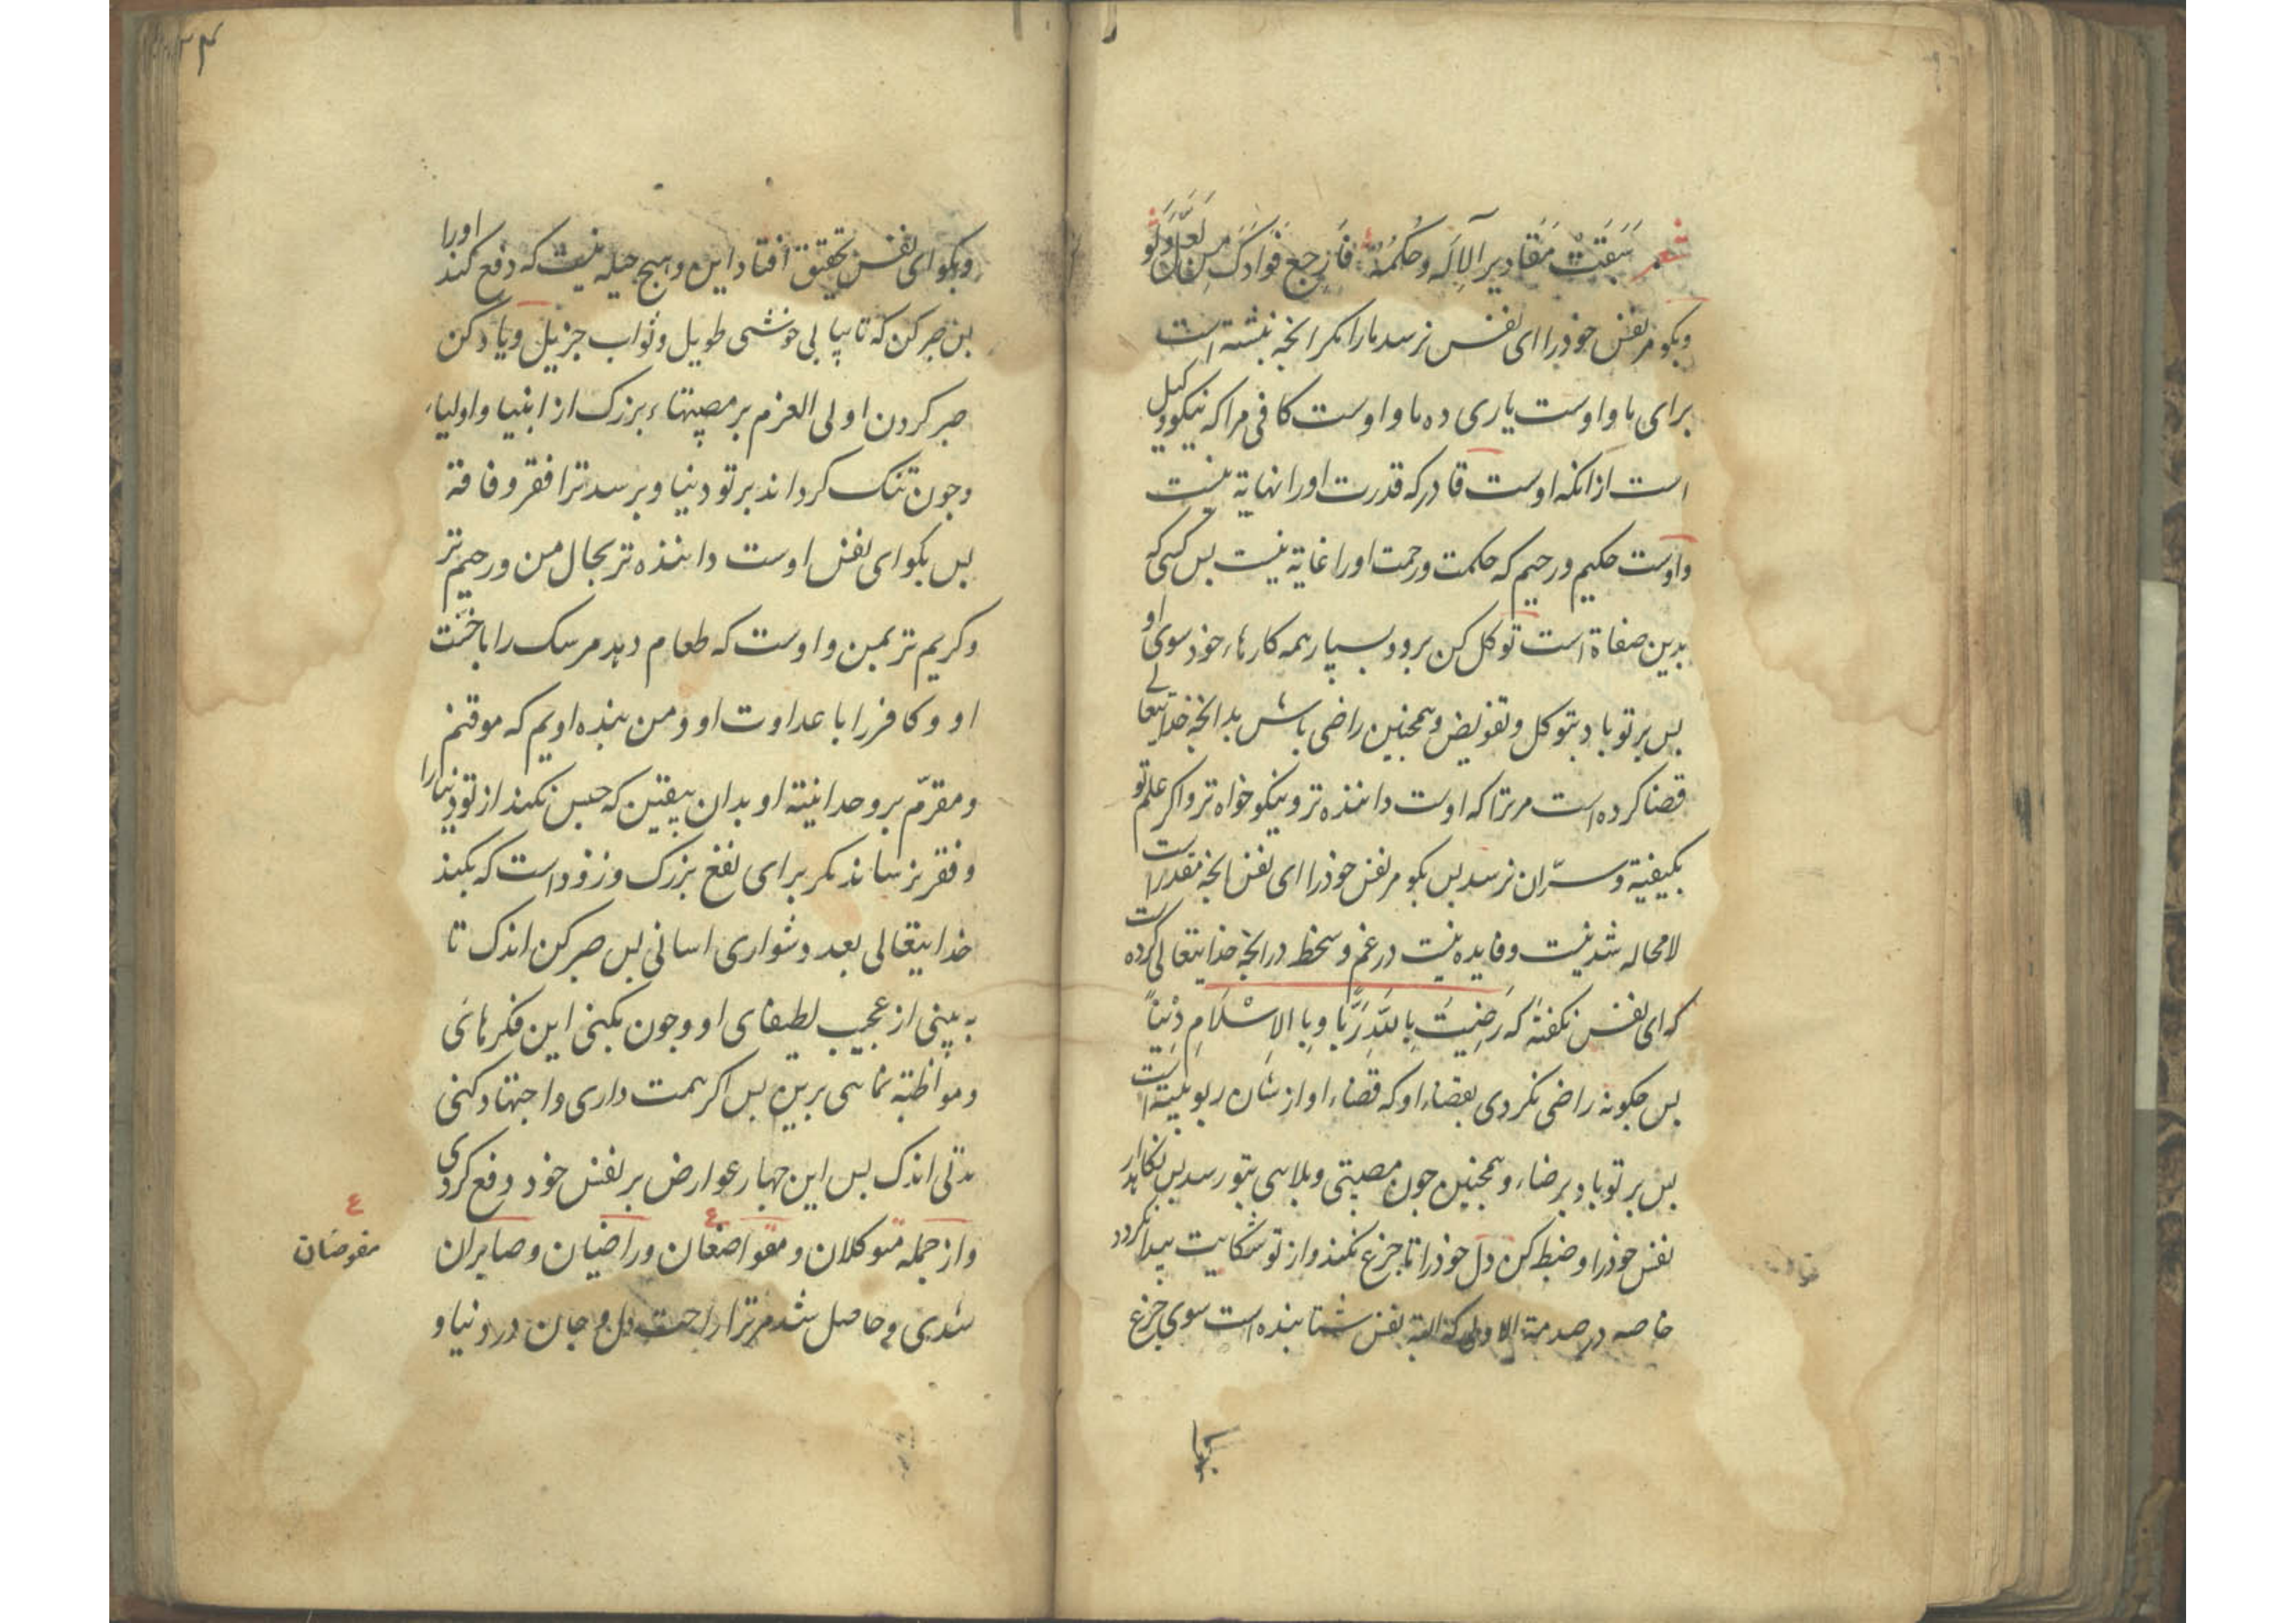 شعر سَبَقَتْ مَقَادِیر الآِلَه وحُکمُهُ فَاَرِحْ فُوَادَکَ مِن لَعَلَّ وَلَو
وبکو مر نفس خوذرا ای نفس نرسد مارا مکر انجه نبشته است
برای ما و اوست یاری ده ما و اوست کافی مرا که نیکو وکیل
است ازانکه اوست قادر که قدرت اورا نهایة نیست
واوست حکیم ورحیم که حکمت ورحمت اورا غایة نیست بس کسی که
بدین صفاة است توکل کن برو و بسپار همه کارهاء خوذ سوی او
بس بر تو باد بتوکل وتفویض وهمجنین راضی باش بدانجه خدایتعالی
قضا کرده است مرترا که اوست داننذه تر ونیکو خواه تر واکر علم تو
بکیفیة وسرّ ان نرسد بس بکو مر نفس خوذرا ای نفس انجه مقدر است
لا محاله شدنیست وفایده نیست در غم وسخط درانجه خذایتعالی کرده است
که ای نفس نکفتهٔ که رَضِیتَ بِاللّهِ رَبًّا وبِا الاِسْلَامِ دِیْناً
بس جکونه راضی نکردی بقضاء او که قضاء او از شان ربوبیّة است
بس بر تو باد برضاء وهمجنین جون مصیبتی وبلایی بتو رسد بس نکاهدار
نفس خوذرا وضبط کن دل خوذرا تا جزع نکند واز تو شکایت بیدا نکردد
خاصه در صدمة الاولی که البته نفس شتابنده است سوی جزع
۳۴
وبکو ای نفس بتحقیق افتاد این وهیج حیله نیست که دفع کند اورا
بس صبر کن که تا بیابی خوشی طویل وثواب جزیل ویاد کن
صبر کردن اولی العزم بر مصیبتهاء بزرک از انبیا واولیاء
وجون تنک کرداند بر تو دنیا وبرسد ترا فقر وفاقة
بس بکو ای نفس اوست داننذه تر بحال من ورحیم تر
وکریم تر بمن واوست که طعام دهد مر سک را با خسّت
او وکافر را با عداوت او ومن بنذه اویم که موقنم
ومقرّم بر وحدانیّة او بدان بیقین که حبس نکند از تو دنیا را
وفقر نرساند مکر برای نفع بزرک وزود است که بکند
خدایتعالی بعد دشواری اسانی بس صبر کن اندک تا
به بینی از عجیب لطیفهای او وجون بکنی این فکرهائی
ومواظبة نمایی برین بس اکر همت داری واجتهاد کنی
مدتی اندک بس این جهار عوارض بر نفس خود دفع کردی
واز جمله متوکلان ومتواضعان وراضیان وصابران
شدی وحاصل شد مرترا راحت دل وجان در دنیا و
ع
مفوضان